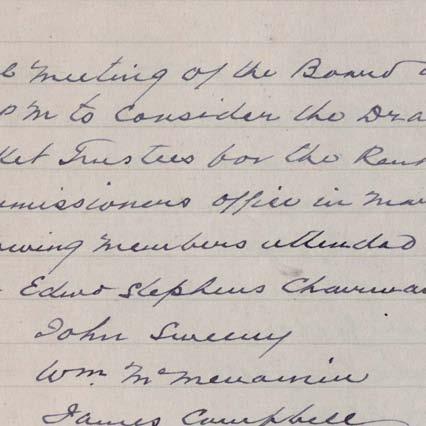 l Meeting of the Board
PM to Consider the Dra
ket Trustees for the Ren
mmissioners office in Mar
owing Members attended
Edwd Stephens Chairma
John Sweeny
Wm. McMenamin
James Campbell